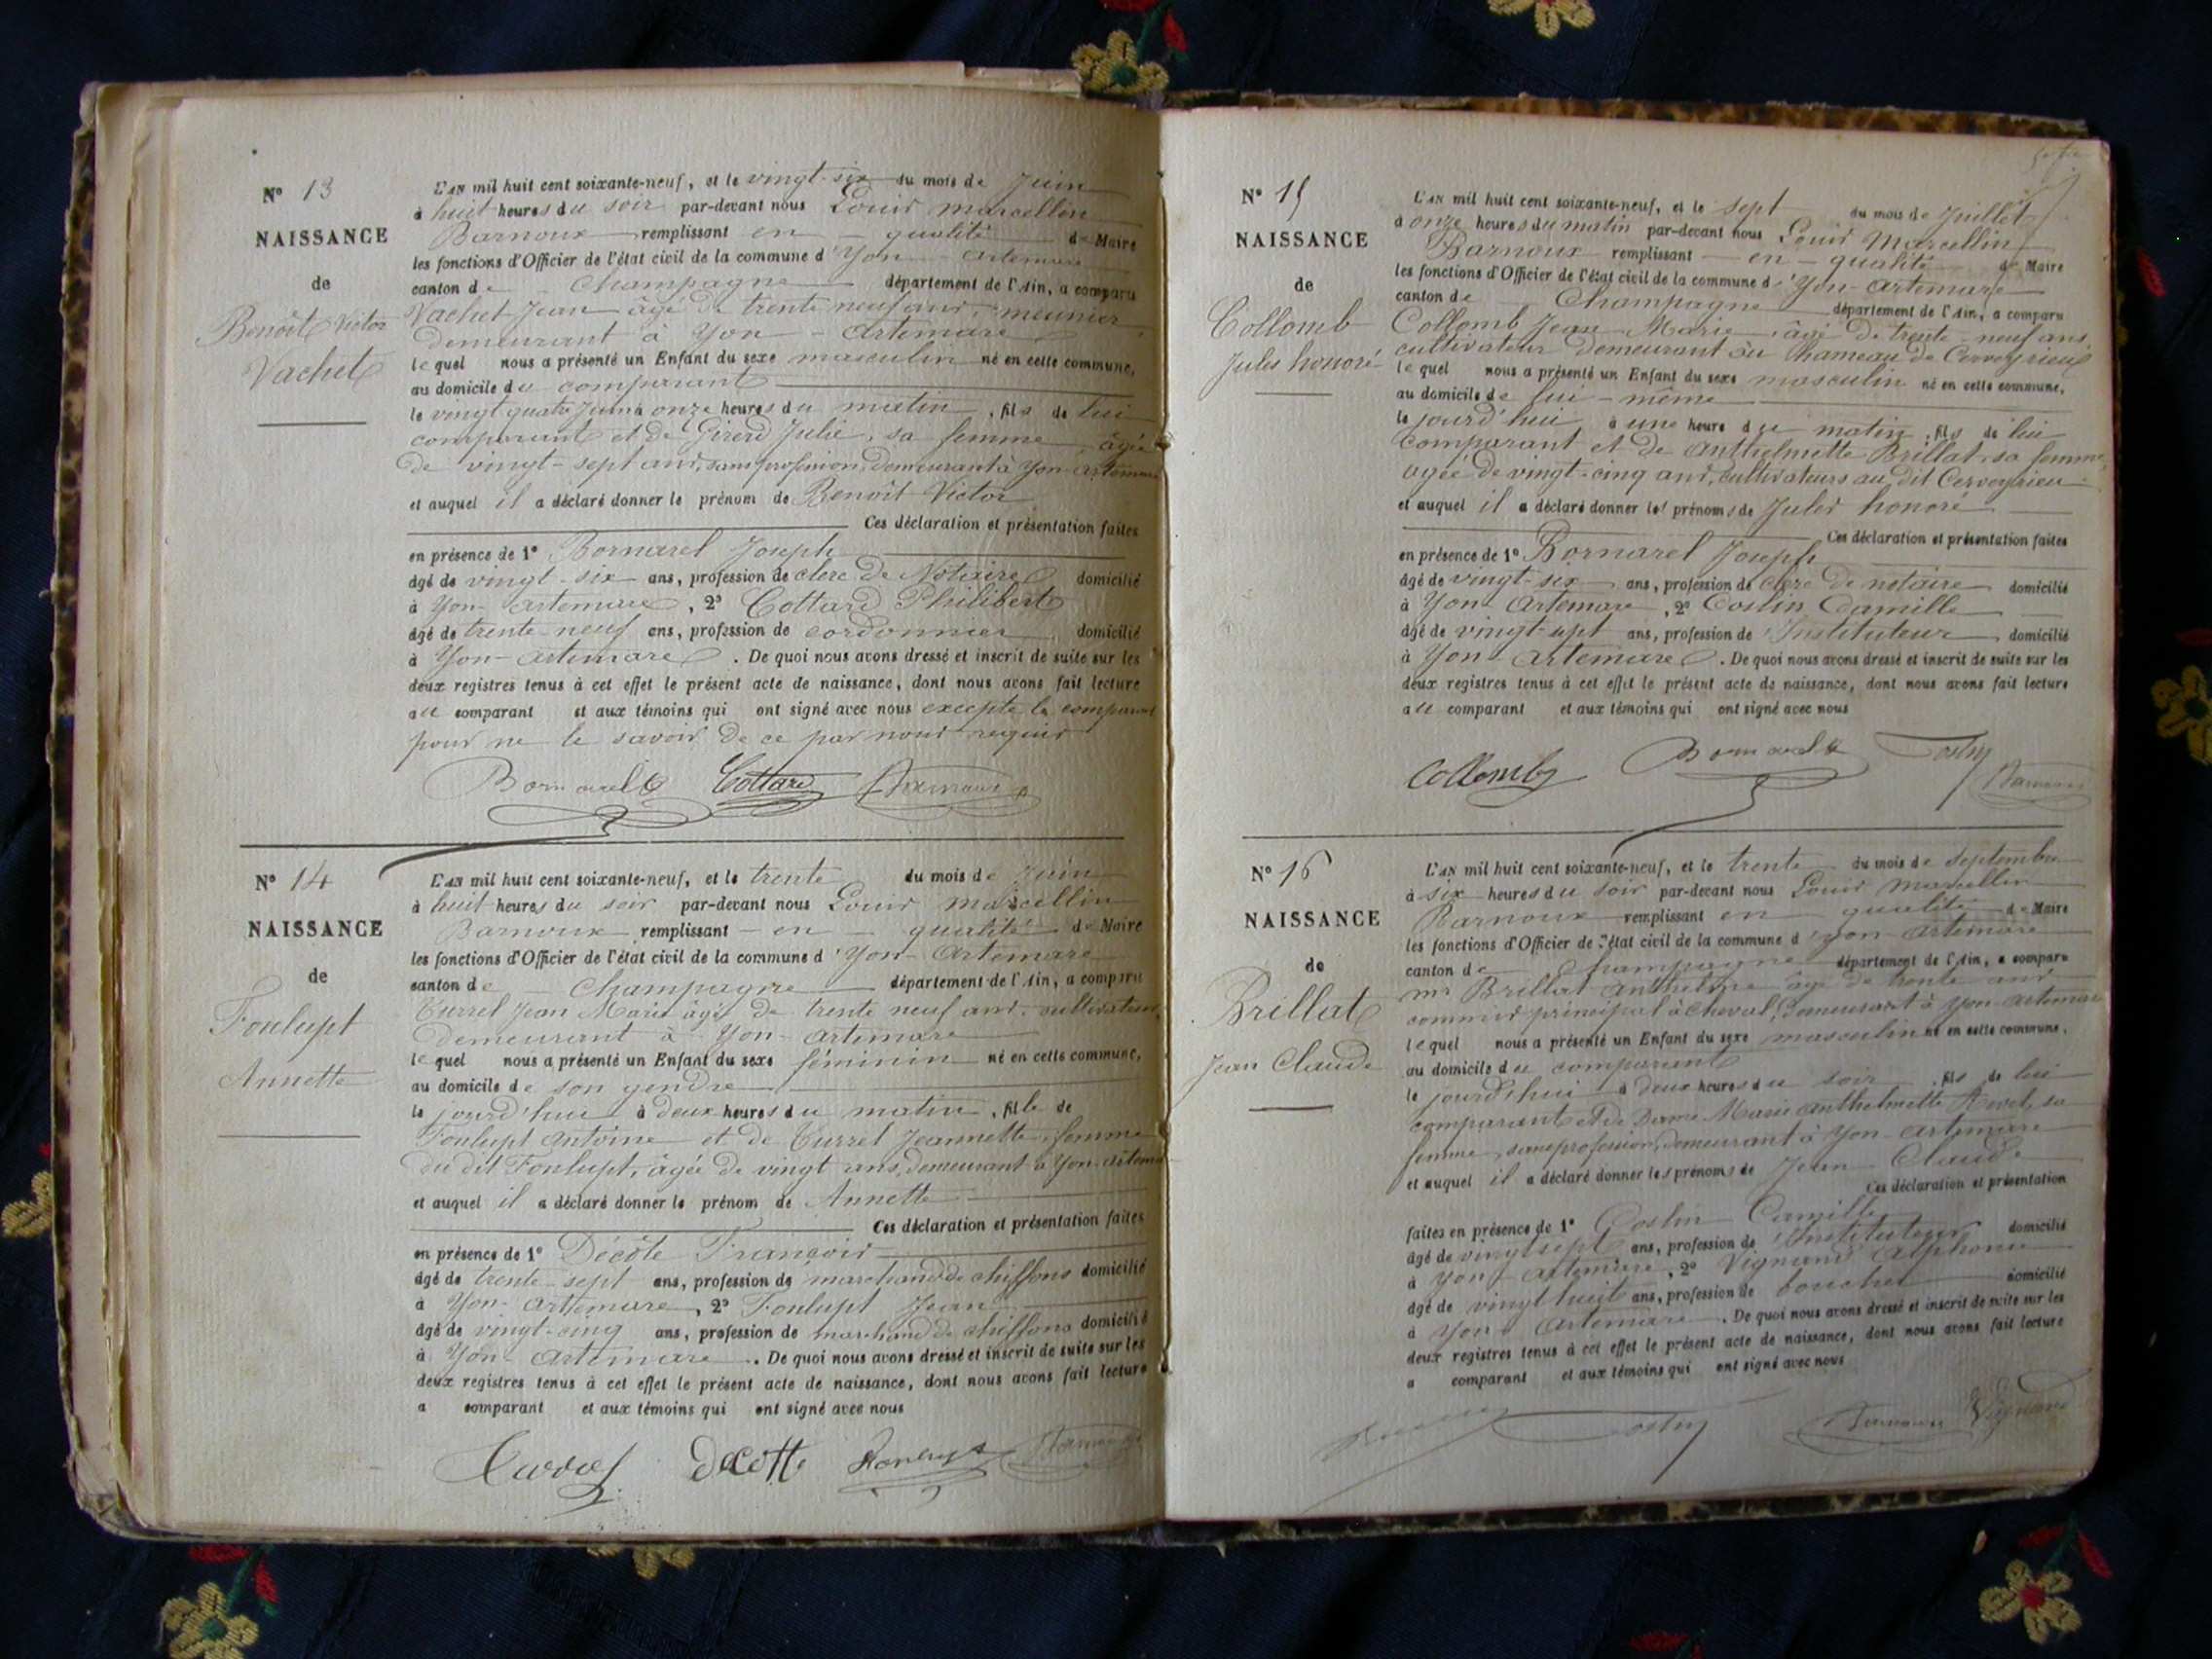 N° 13
NAISSANCE
de
Benoît Victor
Vachet
L'an mil huit cent soixante-neuf, et le vingt-six du mois de Juin
à huit heures du soir par-devant nous Louis Marcellin
Barnoux remplissant en qualité de Maire
les fonctions d'Officier de l'état civil de la commune d'Yon-Artemare
canton de Champagne département de l'Ain, a comparu
Vachet Jean âgé de trente neuf ans, meunier
demeurant à Yon-Artemare
lequel nous a présenté un Enfant du sexe masculin né en cette commune,
au domicile du comparant
le vingt quatre Juin à onze heures du matin, fils de lui
comparant et de Girerd Julie, sa femme, âgée
de vingt-sept ans, sans profession, demeurant à Yon-Artemare
et auquel il a déclaré donner le prénom de Benoît Victor
Ces déclaration et présentation faites
en présence de 1° Bornarel Joseph
âgé de vingt-six ans, profession de clerc de Notaire domicilié
à Yon-Artemare, 2° Cottard Philibert
âgé de trente-neuf ans, profession de cordonnier domicilié
à Yon-Artemare. De quoi nous avons dressé et inscrit de suite sur les
deux registres tenus à cet effet le présent acte de naissance, dont nous avons fait lecture
au comparant et aux témoins qui ont signé avec nous excepté le comparant
pour ne le savoir de ce par nous requis
Bornarel Cottard Barnoux
N° 14
NAISSANCE
de
Foulupt
Annette
L'an mil huit cent soixante-neuf, et le trente du mois de Juin
à huit heures du soir par-devant nous Louis Marcellin
Barnoux remplissant en qualité de Maire
les fonctions d'Officier de l'état civil de la commune d'Yon-Artemare
canton de Champagne département de l'Ain, a comparu
Currel Jean Marie âgé de trente neuf ans, cultivateur,
demeurant à Yon-Artemare
lequel nous a présenté un Enfant du sexe féminin né en cette commune,
au domicile de son gendre
le jourd'hui à deux heures du matin, fille de
Foulupt Antoine et de Currel Jeannette, femme
du dit Foulupt, âgée de vingt ans, demeurant à Yon-Artemare
et auquel il a déclaré donner le prénom de Annette
Ces déclaration et présentation faites
en présence de 1° Décôte François
âgé de trente-sept ans, profession de marchand de chiffons domicilié
à Yon-Artemare, 2° Foulupt Jean
âgé de vingt-cinq ans, profession de marchand de chiffons domicilié
à Yon-Artemare. De quoi nous avons dressé et inscrit de suite sur les
deux registres tenus à cet effet le présent acte de naissance, dont nous avons fait lecture
a comparant et aux témoins qui ont signé avec nous
decotte Barnoux
N° 15
NAISSANCE
de
Collomb
Jules honoré
L'an mil huit cent soixante-neuf, et le sept du mois de Juillet
à onze heures du matin par-devant nous Louis Marcellin
Barnoux remplissant en qualité de Maire
les fonctions d'Officier de l'état civil de la commune d'Yon-Artemare
canton de Champagne département de l'Ain, a comparu
Collomb Jean Marie, âgé de trente-neuf ans,
cultivateur demeurant au hameau de Cerveyrieu
lequel nous a présenté un Enfant du sexe masculin né en cette commune,
au domicile de lui-même
le jourd'hui à une heure du matin, fils de lui
comparant et de Anthelmette Brillat, sa femme,
agée de vingt-cinq ans, cultivateurs au dit Cerveyrieu
et auquel il a déclaré donner les prénoms de Jules honoré
Ces déclaration et présentation faites
en présence de 1° Bornarel Joseph
âgé de vingt-six ans, profession de clerc de notaire domicilié
à Yon-Artemare, 2° Costin Camille
âgé de vingt-sept ans, profession d'Instituteur domicilié
à Yon-Artemare. De quoi nous avons dressé et inscrit de suite sur les
deux registres tenus à cet effet le présent acte de naissance, dont nous avons fait lecture
au comparant et aux témoins qui ont signé avec nous
Collomb Bornarel Barnoux
N° 16
NAISSANCE
de
Brillat
Jean Claude
L'an mil huit cent soixante-neuf, et le trente du mois de Septembre
à six heures du soir par-devant nous Louis Marcellin
Barnoux remplissant en qualité de Maire
les fonctions d'Officier de l'état civil de la commune d'Yon-Artemare
canton de Champagne département de l'Ain, a comparu
mr Brillat Anthelme âgé de trente ans
commis principal à cheval, demeurant à Yon-Artemare
lequel nous a présenté un Enfant du sexe masculin né en cette commune,
au domicile du comparant
le jourd'hui à deux heures du soir, fils de lui
comparant et de Dame Marie Anthelmette Revet, sa
femme, sans profession, demeurant à Yon-Artemare
et auquel il a déclaré donner les prénoms de Jean Claude
Ces déclaration et présentation
faites en présence de 1° Costin Camille
âgé de vingt sept ans, profession d'Instituteur domicilié
à Yon-Artemare, 2° Vignand Alphonse
âgé de vingt huit ans, profession de boucher domicilié
à Yon-Artemare. De quoi nous avons dressé et inscrit de suite sur les
deux registres tenus à cet effet le présent acte de naissance, dont nous avons fait lecture
a comparant et aux témoins qui ont signé avec nous
Barnoux Vignand